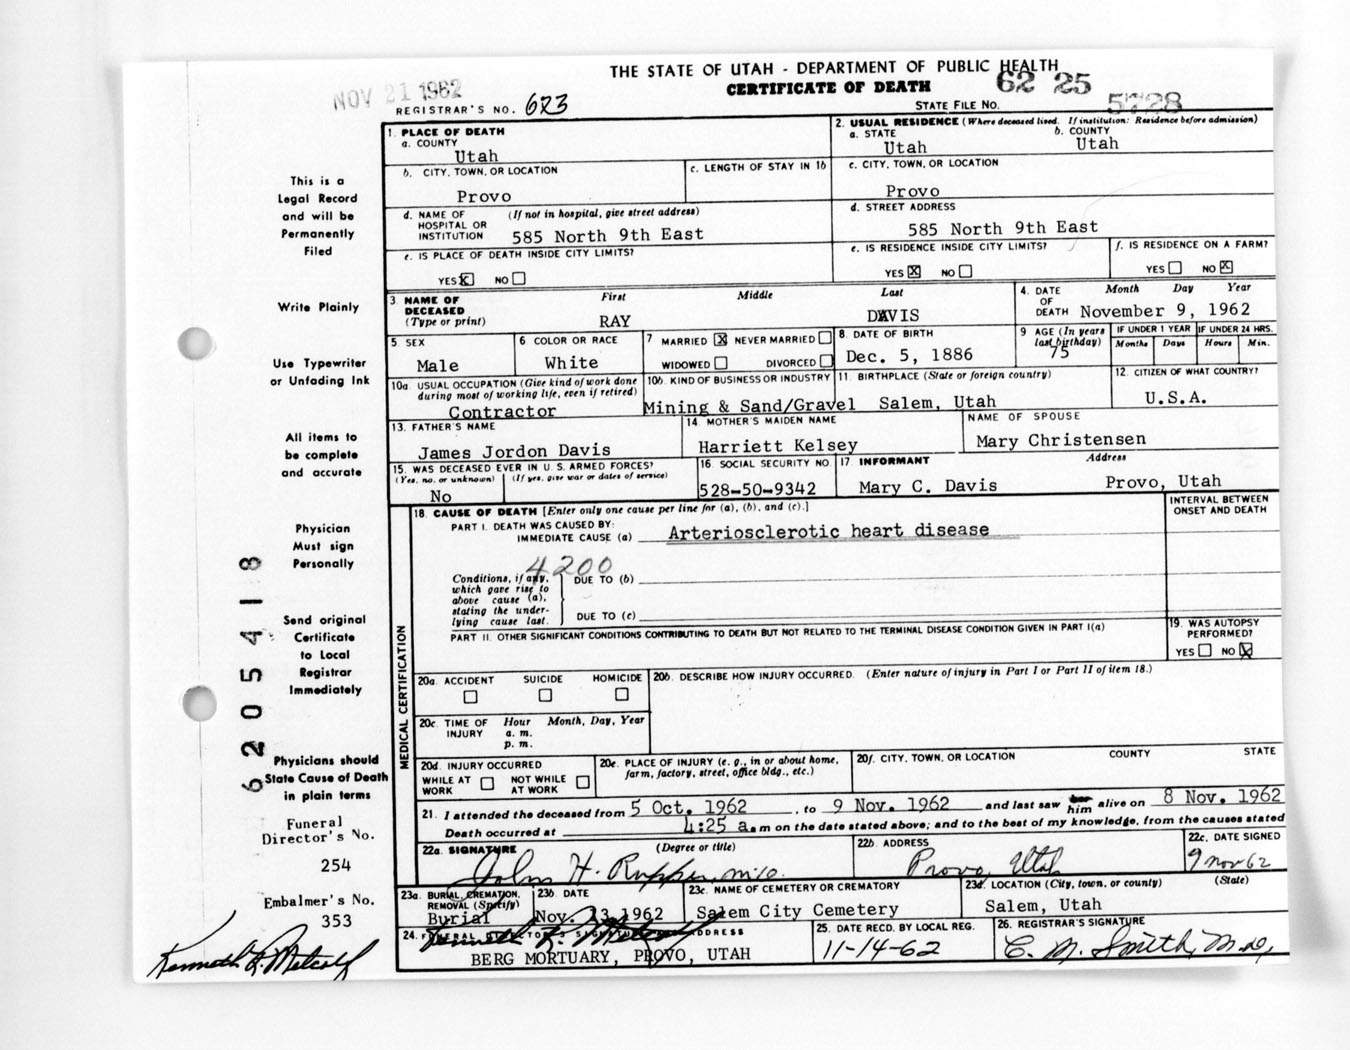 THE STATE OF UTAH - DEPARTMENT OF PUBLIC HEALTH
NOV 21 1962
CERTIFICATE OF DEATH
62 25
REGISTRAR'S NO. 623
STATE FILE NO. 5728
1. PLACE OF DEATH
a. COUNTY
Utah
2. USUAL RESIDENCE (Where deceased lived. If institution: Residence before admission)
a. STATE
Utah
b. COUNTY
Utah
b. CITY, TOWN, OR LOCATION
Provo
c. LENGTH OF STAY IN 1b
c. CITY, TOWN, OR LOCATION
Provo
d. NAME OF HOSPITAL OR INSTITUTION (If not in hospital, give street address)
585 North 9th East
d. STREET ADDRESS
585 North 9th East
e. IS PLACE OF DEATH INSIDE CITY LIMITS?
YES X NO
e. IS RESIDENCE INSIDE CITY LIMITS?
YES X NO
f. IS RESIDENCE ON A FARM?
YES NO X
3. NAME OF DECEASED (Type or print)
First Middle Last
RAY DAVIS
4. DATE OF DEATH
Month Day Year
November 9, 1962
5. SEX
Male
6. COLOR OR RACE
White
7. MARRIED X NEVER MARRIED
WIDOWED DIVORCED
8. DATE OF BIRTH
Dec. 5, 1886
9. AGE (In years last birthday)
75
IF UNDER 1 YEAR
Months Days
IF UNDER 24 HRS.
Hours Min.
10a. USUAL OCCUPATION (Give kind of work done during most of working life, even if retired)
Contractor
10b. KIND OF BUSINESS OR INDUSTRY
Mining & Sand/Gravel
11. BIRTHPLACE (State or foreign country)
Salem, Utah
12. CITIZEN OF WHAT COUNTRY?
U.S.A.
13. FATHER'S NAME
James Jordon Davis
14. MOTHER'S MAIDEN NAME
Harriett Kelsey
NAME OF SPOUSE
Mary Christensen
15. WAS DECEASED EVER IN U. S. ARMED FORCES?
(Yes, no, or unknown) (If yes, give war or dates of service)
No
16. SOCIAL SECURITY NO.
528-50-9342
17. INFORMANT Address
Mary C. Davis Provo, Utah
MEDICAL CERTIFICATION
18. CAUSE OF DEATH [Enter only one cause per line for (a), (b), and (c).]
INTERVAL BETWEEN ONSET AND DEATH
PART I. DEATH WAS CAUSED BY:
IMMEDIATE CAUSE (a) Arteriosclerotic heart disease
4200
Conditions, if any, which gave rise to above cause (a), stating the underlying cause last.
DUE TO (b)
DUE TO (c)
PART II. OTHER SIGNIFICANT CONDITIONS CONTRIBUTING TO DEATH BUT NOT RELATED TO THE TERMINAL DISEASE CONDITION GIVEN IN PART I(a)
19. WAS AUTOPSY PERFORMED?
YES NO X
20a. ACCIDENT SUICIDE HOMICIDE
20b. DESCRIBE HOW INJURY OCCURRED. (Enter nature of injury in Part I or Part II of item 18.)
20c. TIME OF INJURY
Hour Month, Day, Year
a. m.
p. m.
20d. INJURY OCCURRED
WHILE AT WORK NOT WHILE AT WORK
20e. PLACE OF INJURY (e. g., in or about home, farm, factory, street, office bldg., etc.)
20f. CITY, TOWN, OR LOCATION COUNTY STATE
21. I attended the deceased from 5 Oct. 1962, to 9 Nov. 1962 and last saw him alive on 8 Nov. 1962
Death occurred at 4:25 a.m on the date stated above; and to the best of my knowledge, from the causes stated
22a. SIGNATURE (Degree or title)
John H. Rupper, M.D.
22b. ADDRESS
Provo, Utah
22c. DATE SIGNED
9 Nov 62
23a. BURIAL, CREMATION, REMOVAL (Specify)
Burial
23b. DATE
Nov. 13 1962
23c. NAME OF CEMETERY OR CREMATORY
Salem City Cemetery
23d. LOCATION (City, town, or county) (State)
Salem, Utah
24. FUNERAL DIRECTOR'S SIGNATURE ADDRESS
Kenneth L. Metcalf
BERG MORTUARY, PROVO, UTAH
25. DATE RECD. BY LOCAL REG.
11-14-62
26. REGISTRAR'S SIGNATURE
C. M. Smith, M.D.
This is a
Legal Record
and will be
Permanently
Filed
Write Plainly
Use Typewriter
or Unfading Ink
All items to
be complete
and accurate
Physician
Must sign
Personally
Send original
Certificate
to Local
Registrar
Immediately
Physicians should
State Cause of Death
in plain terms
Funeral
Director's No.
254
Embalmer's No.
353
Kenneth L. Metcalf
6205418